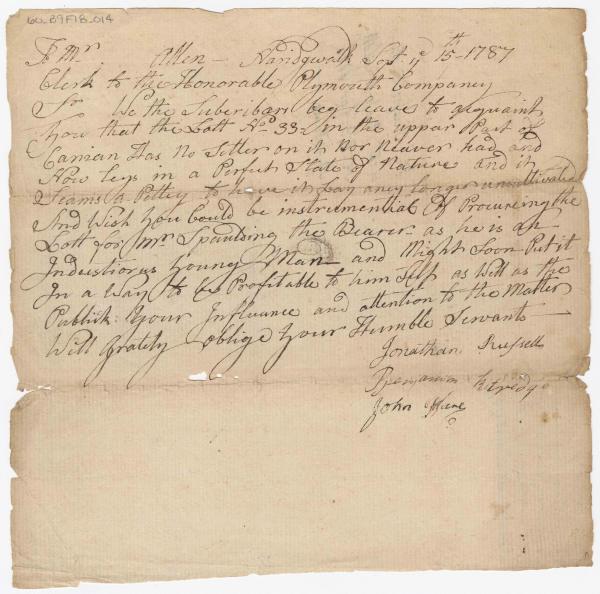 60_B9F18_014
To Mr. Allen - Naridgwalk Sept. ye 15th 1787
Clerk to the Honorable Plymouth Company
Sr We the Suberibars beg leave to aquaint
You that the Lott No 33 - in the uppar Part of
Canian Has No Setler on it Nor Neaver had and
Now Leys in a Perfect State of Nature and it
Seams a Pittey to have it Lay aney longer uncultivated
And Wish You Could be instrumential Of Procureing the
Lott for Mr. Spaulding the Bearer as he is an
Industiorus Young Man - and Might Soon Put it
In a Way to be Profitable to him Self as Well as the
Publick: Your Influance and attention to the Matter
Will grately oblige Your Humble Servants
Jonathan Russell
Benjamin
John